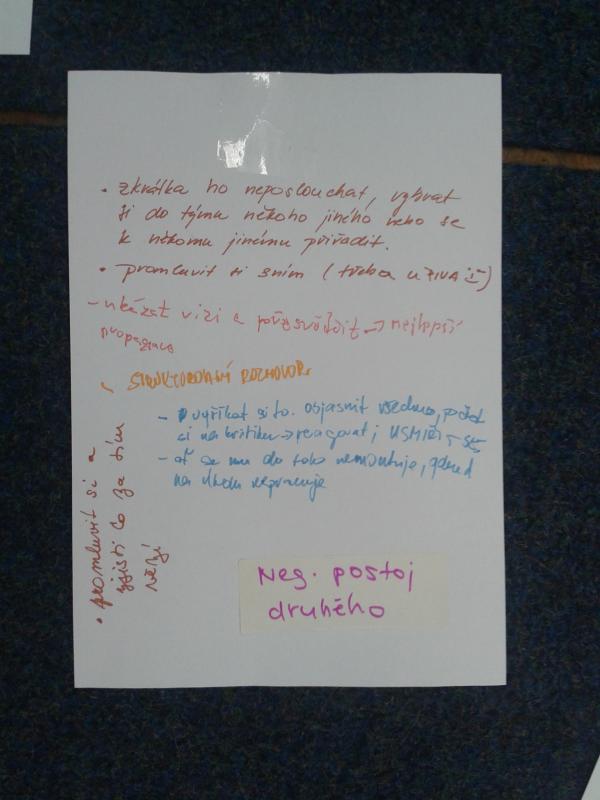 • zkrátka ho neposlouchat, vybrat
si do týmu někoho jiného nebo se
k někomu jinému přiřadit.
• promluvit si sním (třeba u PIVA )
– ukázat vizi a přesvědčit → nejlepší
propaganda
STRUKTUROVANÝ ROZHOVOR
– vyříkat si to. objasnit všechno,
na kritiku → reagovat, USMÍŘIT SE
– ať se mu do toho nemontuje, pokud
na úkolu nepracuje
• promluvit si a
zjistit co za tím
vězí
Neg. postoj
druhého